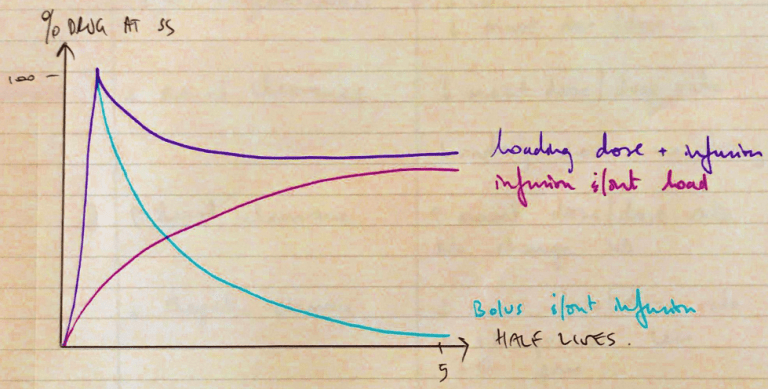 % DRUG AT SS
100
loading dose + infusion
infusion s/out load
Bolus s/out infusion
HALF LIVES.
5